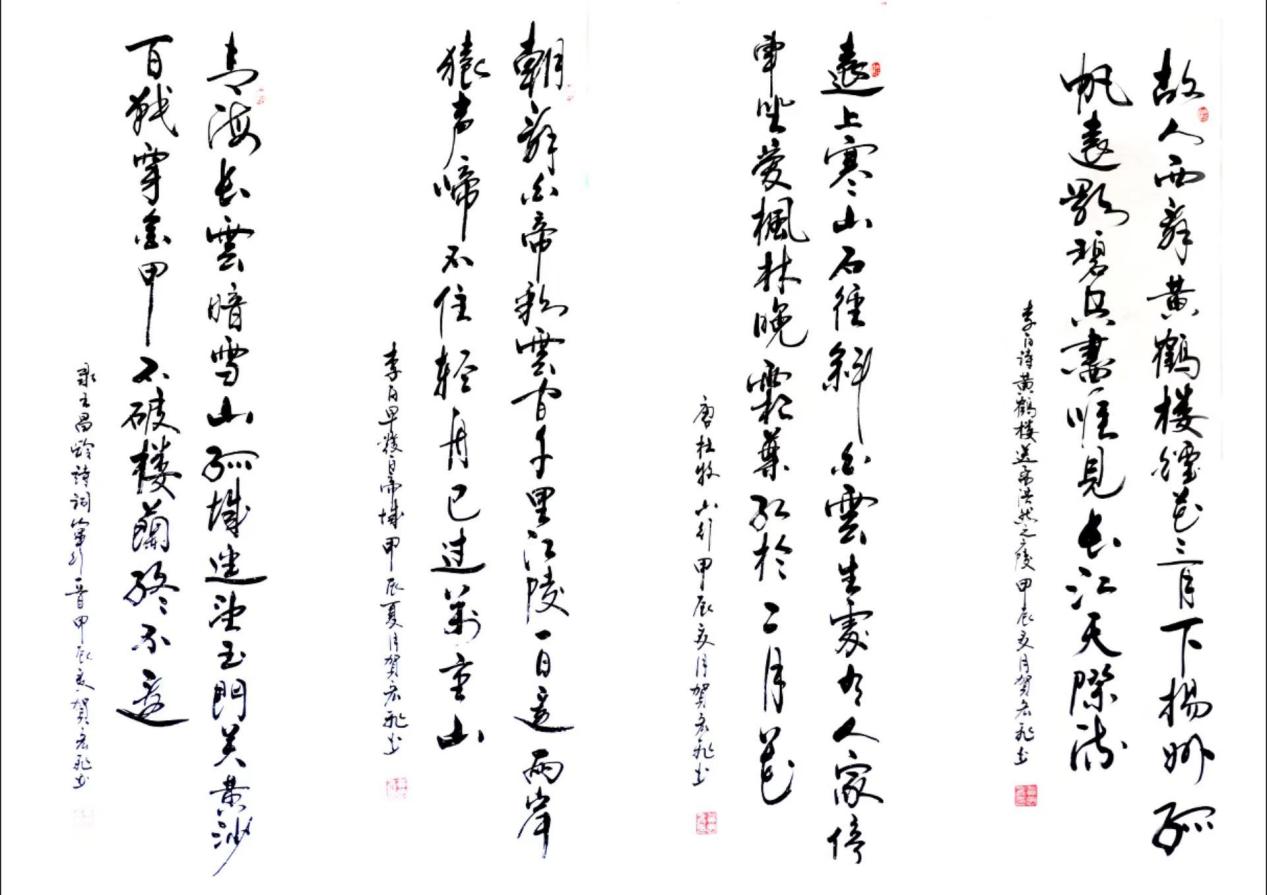 故人西辞黄鹤楼烟花三月下揚州孤
帆遠影碧空盡唯見長江天際流
李白诗黄鹤楼送孟浩然之廣陵甲辰亥月賀宏飛書
遠上寒山石徑斜白雲生處有人家停
車坐愛楓林晚霜葉紅於二月花
唐杜牧山行甲辰亥月賀宏飛书
朝辞白帝彩雲間千里江陵一日還兩岸
猿声啼不住轻舟已过萬重山
李白早發白帝城甲辰夏月賀宏飛书
青海長雲暗雪山孤城遥望玉門关黄沙
百戰穿金甲不破楼蘭終不還
录王昌龄詩詞軍行一首甲辰夏賀宏飛书